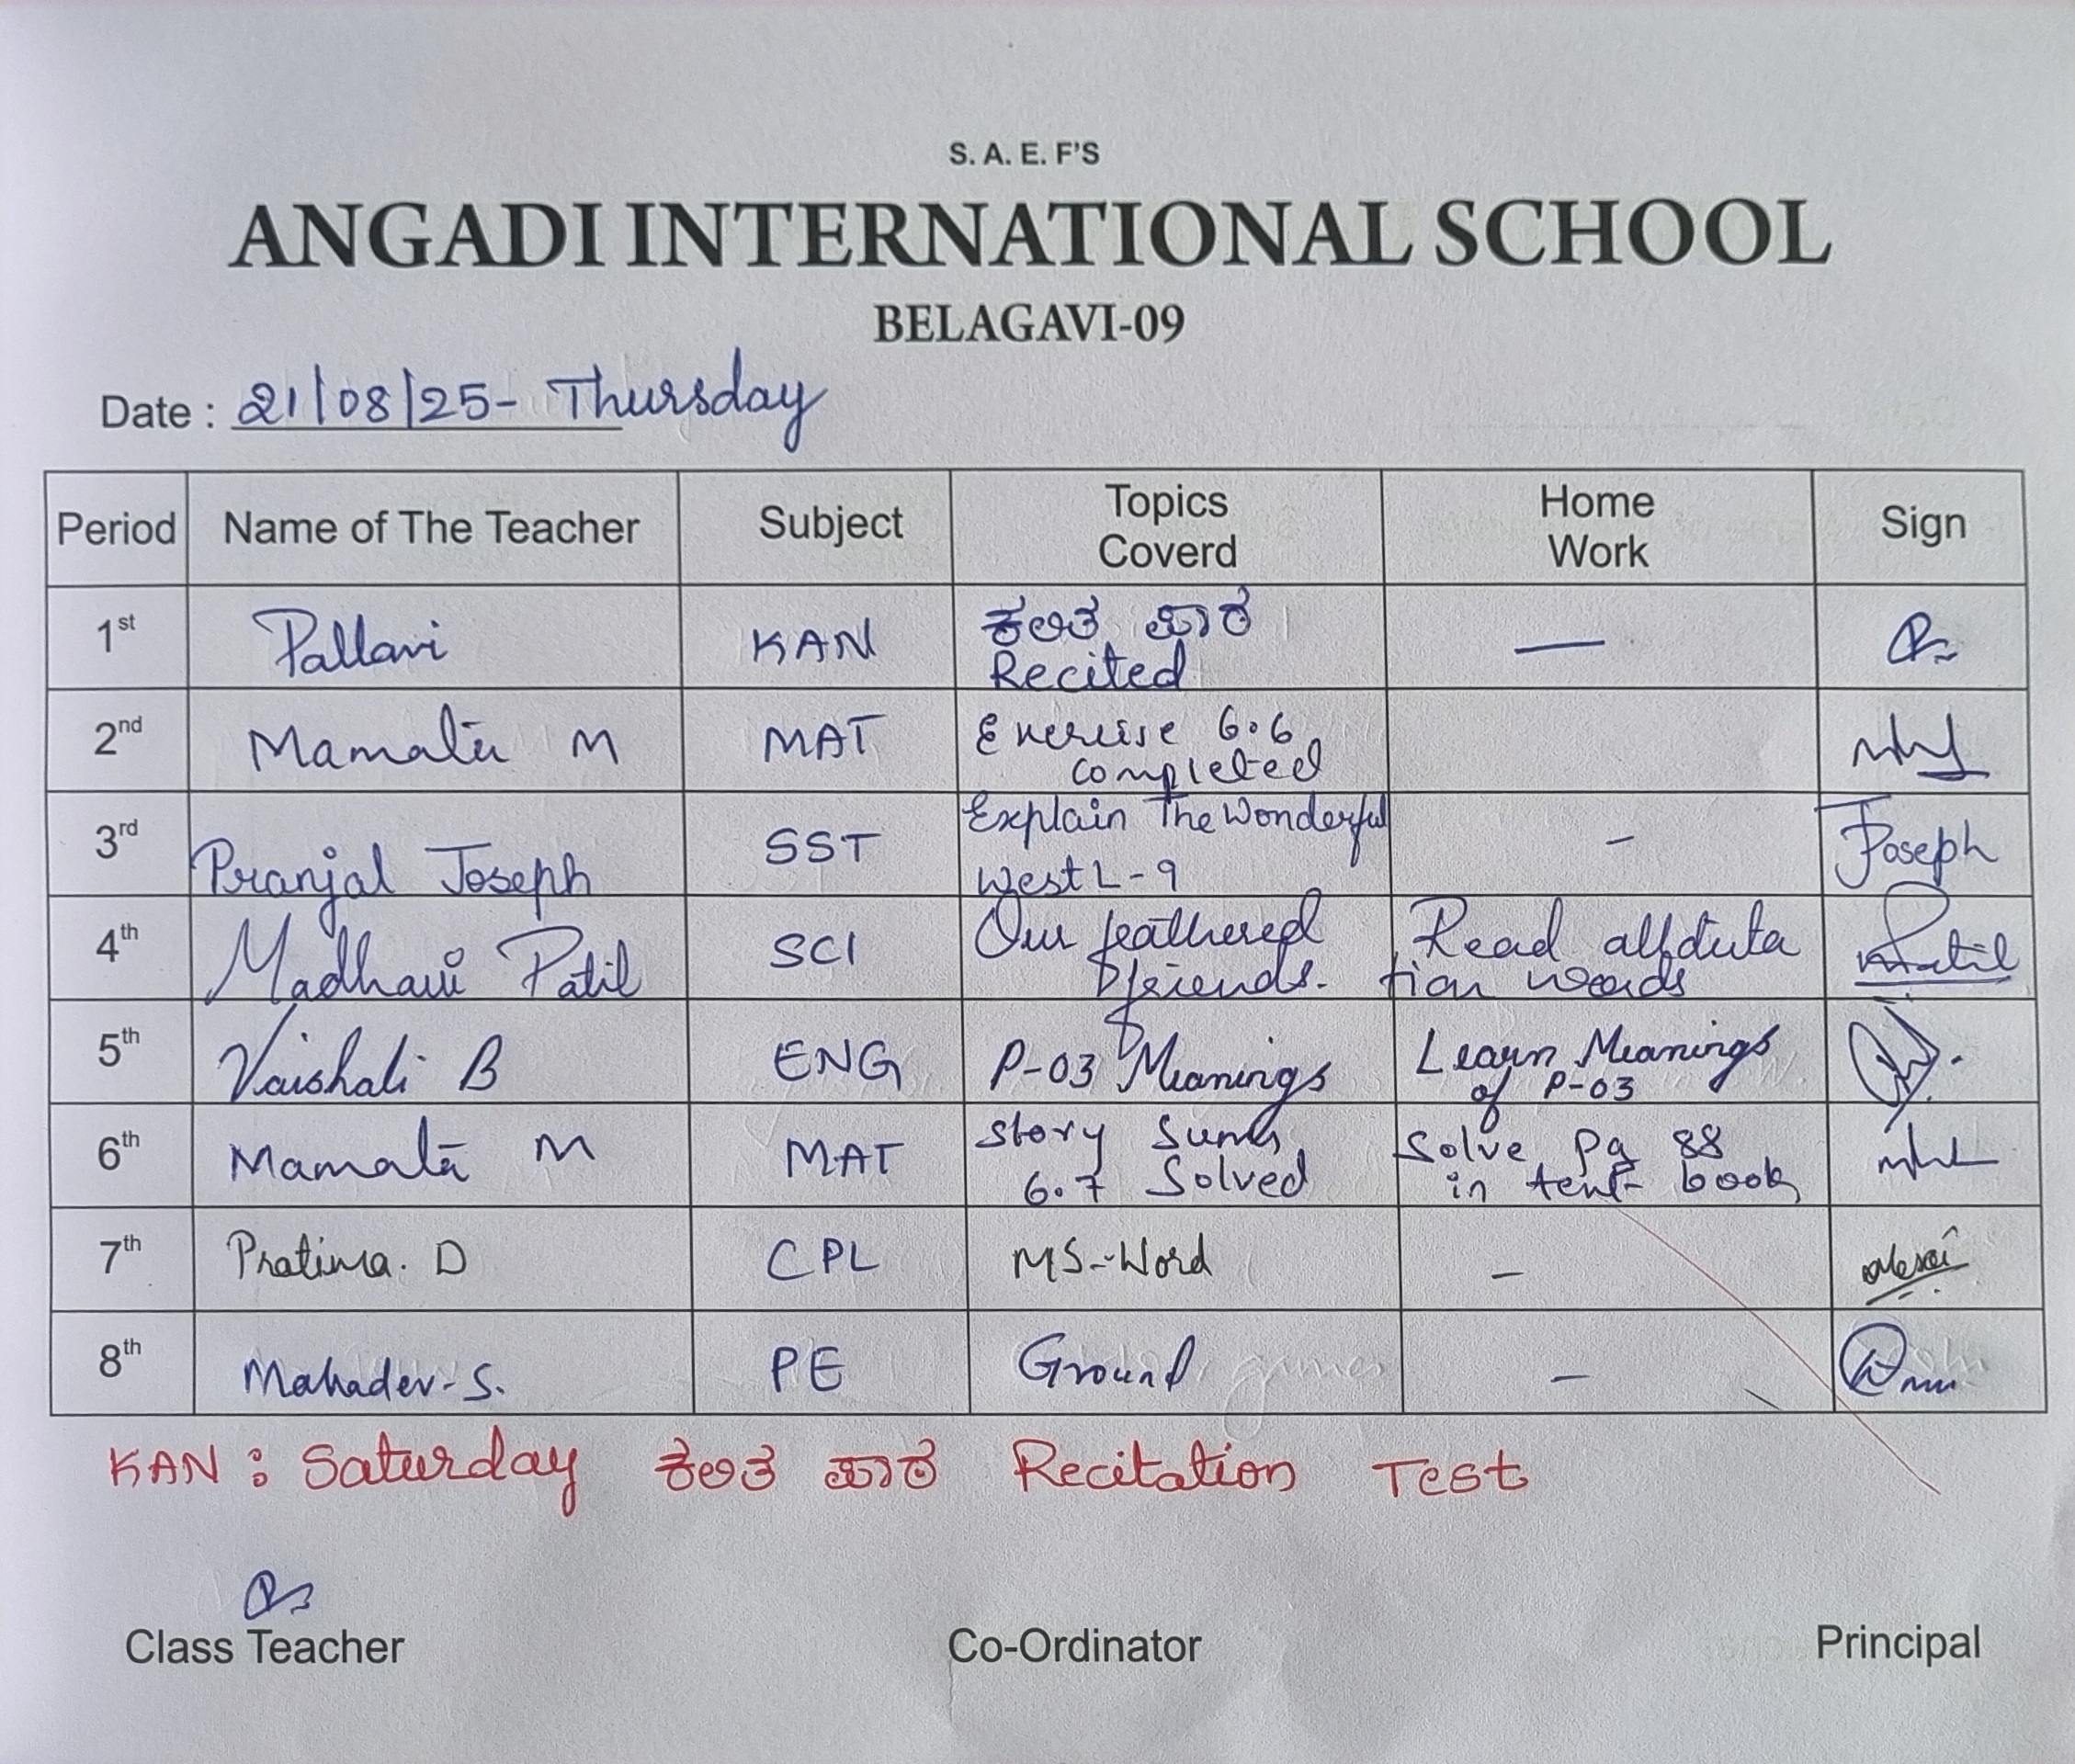 S. A. E. F'S
ANGADI INTERNATIONAL SCHOOL
BELAGAVI-09
Date : 21/08/25- Thursday
Period Name of The Teacher Subject Topics Coverd Home Work Sign
1st Pallavi KAN Recited —
2nd Mamata M MAT Exercise 6.6 completed
3rd Pranjal Joseph SST Explain The Wonderful West L-9 - Joseph
4th Madhavi Patil SCI Our feathered friends. Read all words Patil
5th Vaishali B ENG P-03 Meanings Learn Meanings of P-03
6th Mamata M MAT Story Sums 6.7 Solved Solve Pg 88 in text book
7th Pratima. D CPL MS-Word -
8th Mahadev-S. PE Ground -
KAN : Saturday Recitation Test
Class Teacher Co-Ordinator Principal